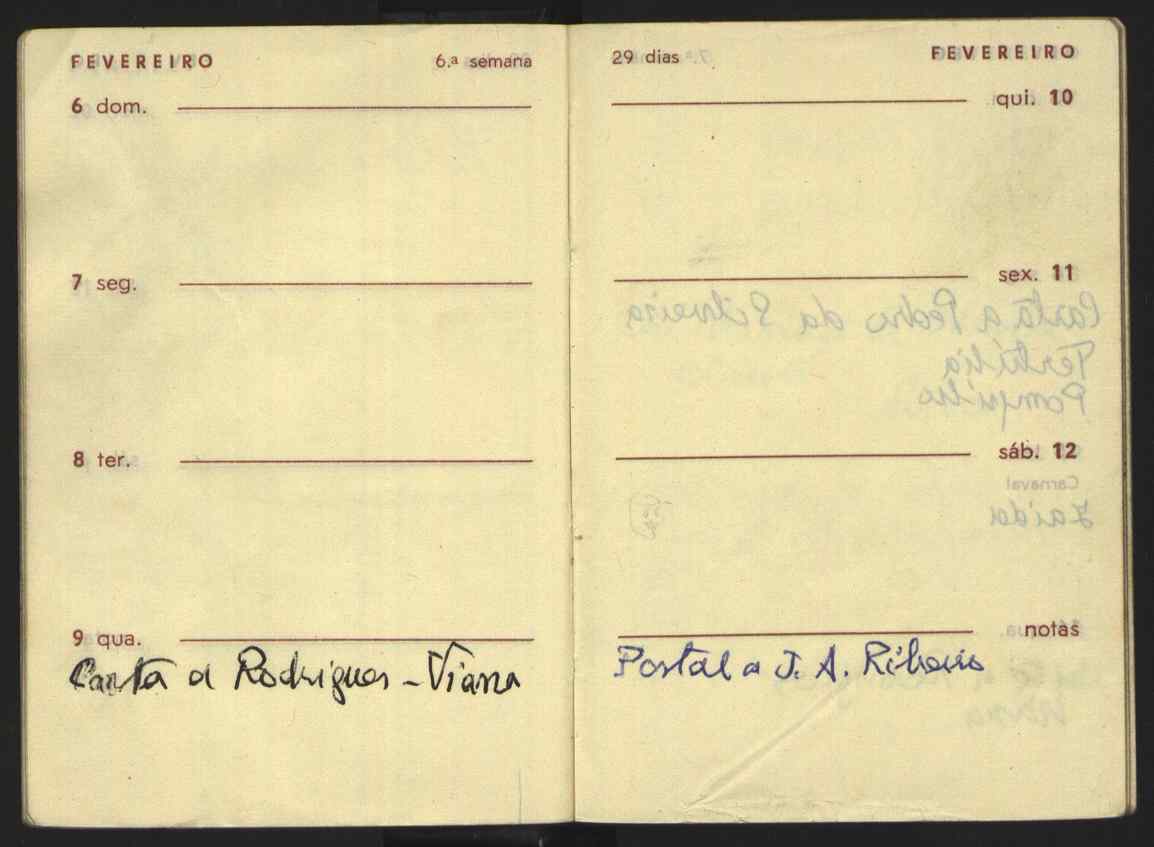 FEVEREIRO 6.ª semana
6 dom.
7 seg.
8 ter.
9 qua.
Carta a Rodrigues - Viana
29 dias FEVEREIRO
qui. 10
sex. 11
Carta a Pedro da Silveira
Tertúlia
Pompílio
sáb. 12
Carnaval
Zaida
notas
Postal a J. A. Ribeiro